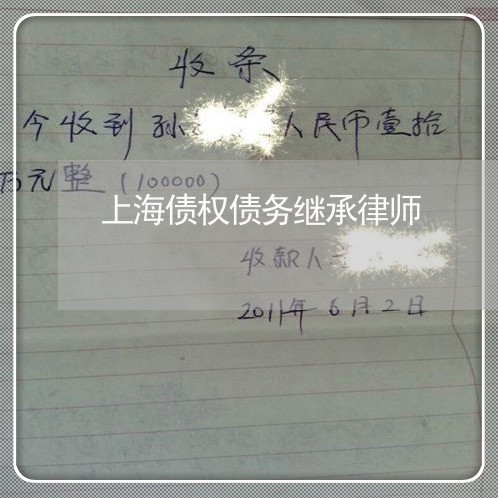 收条
今收到孙 人民币壹拾
万元整(100000)
上海债权债务继承律师
收款人
2011年6月2日